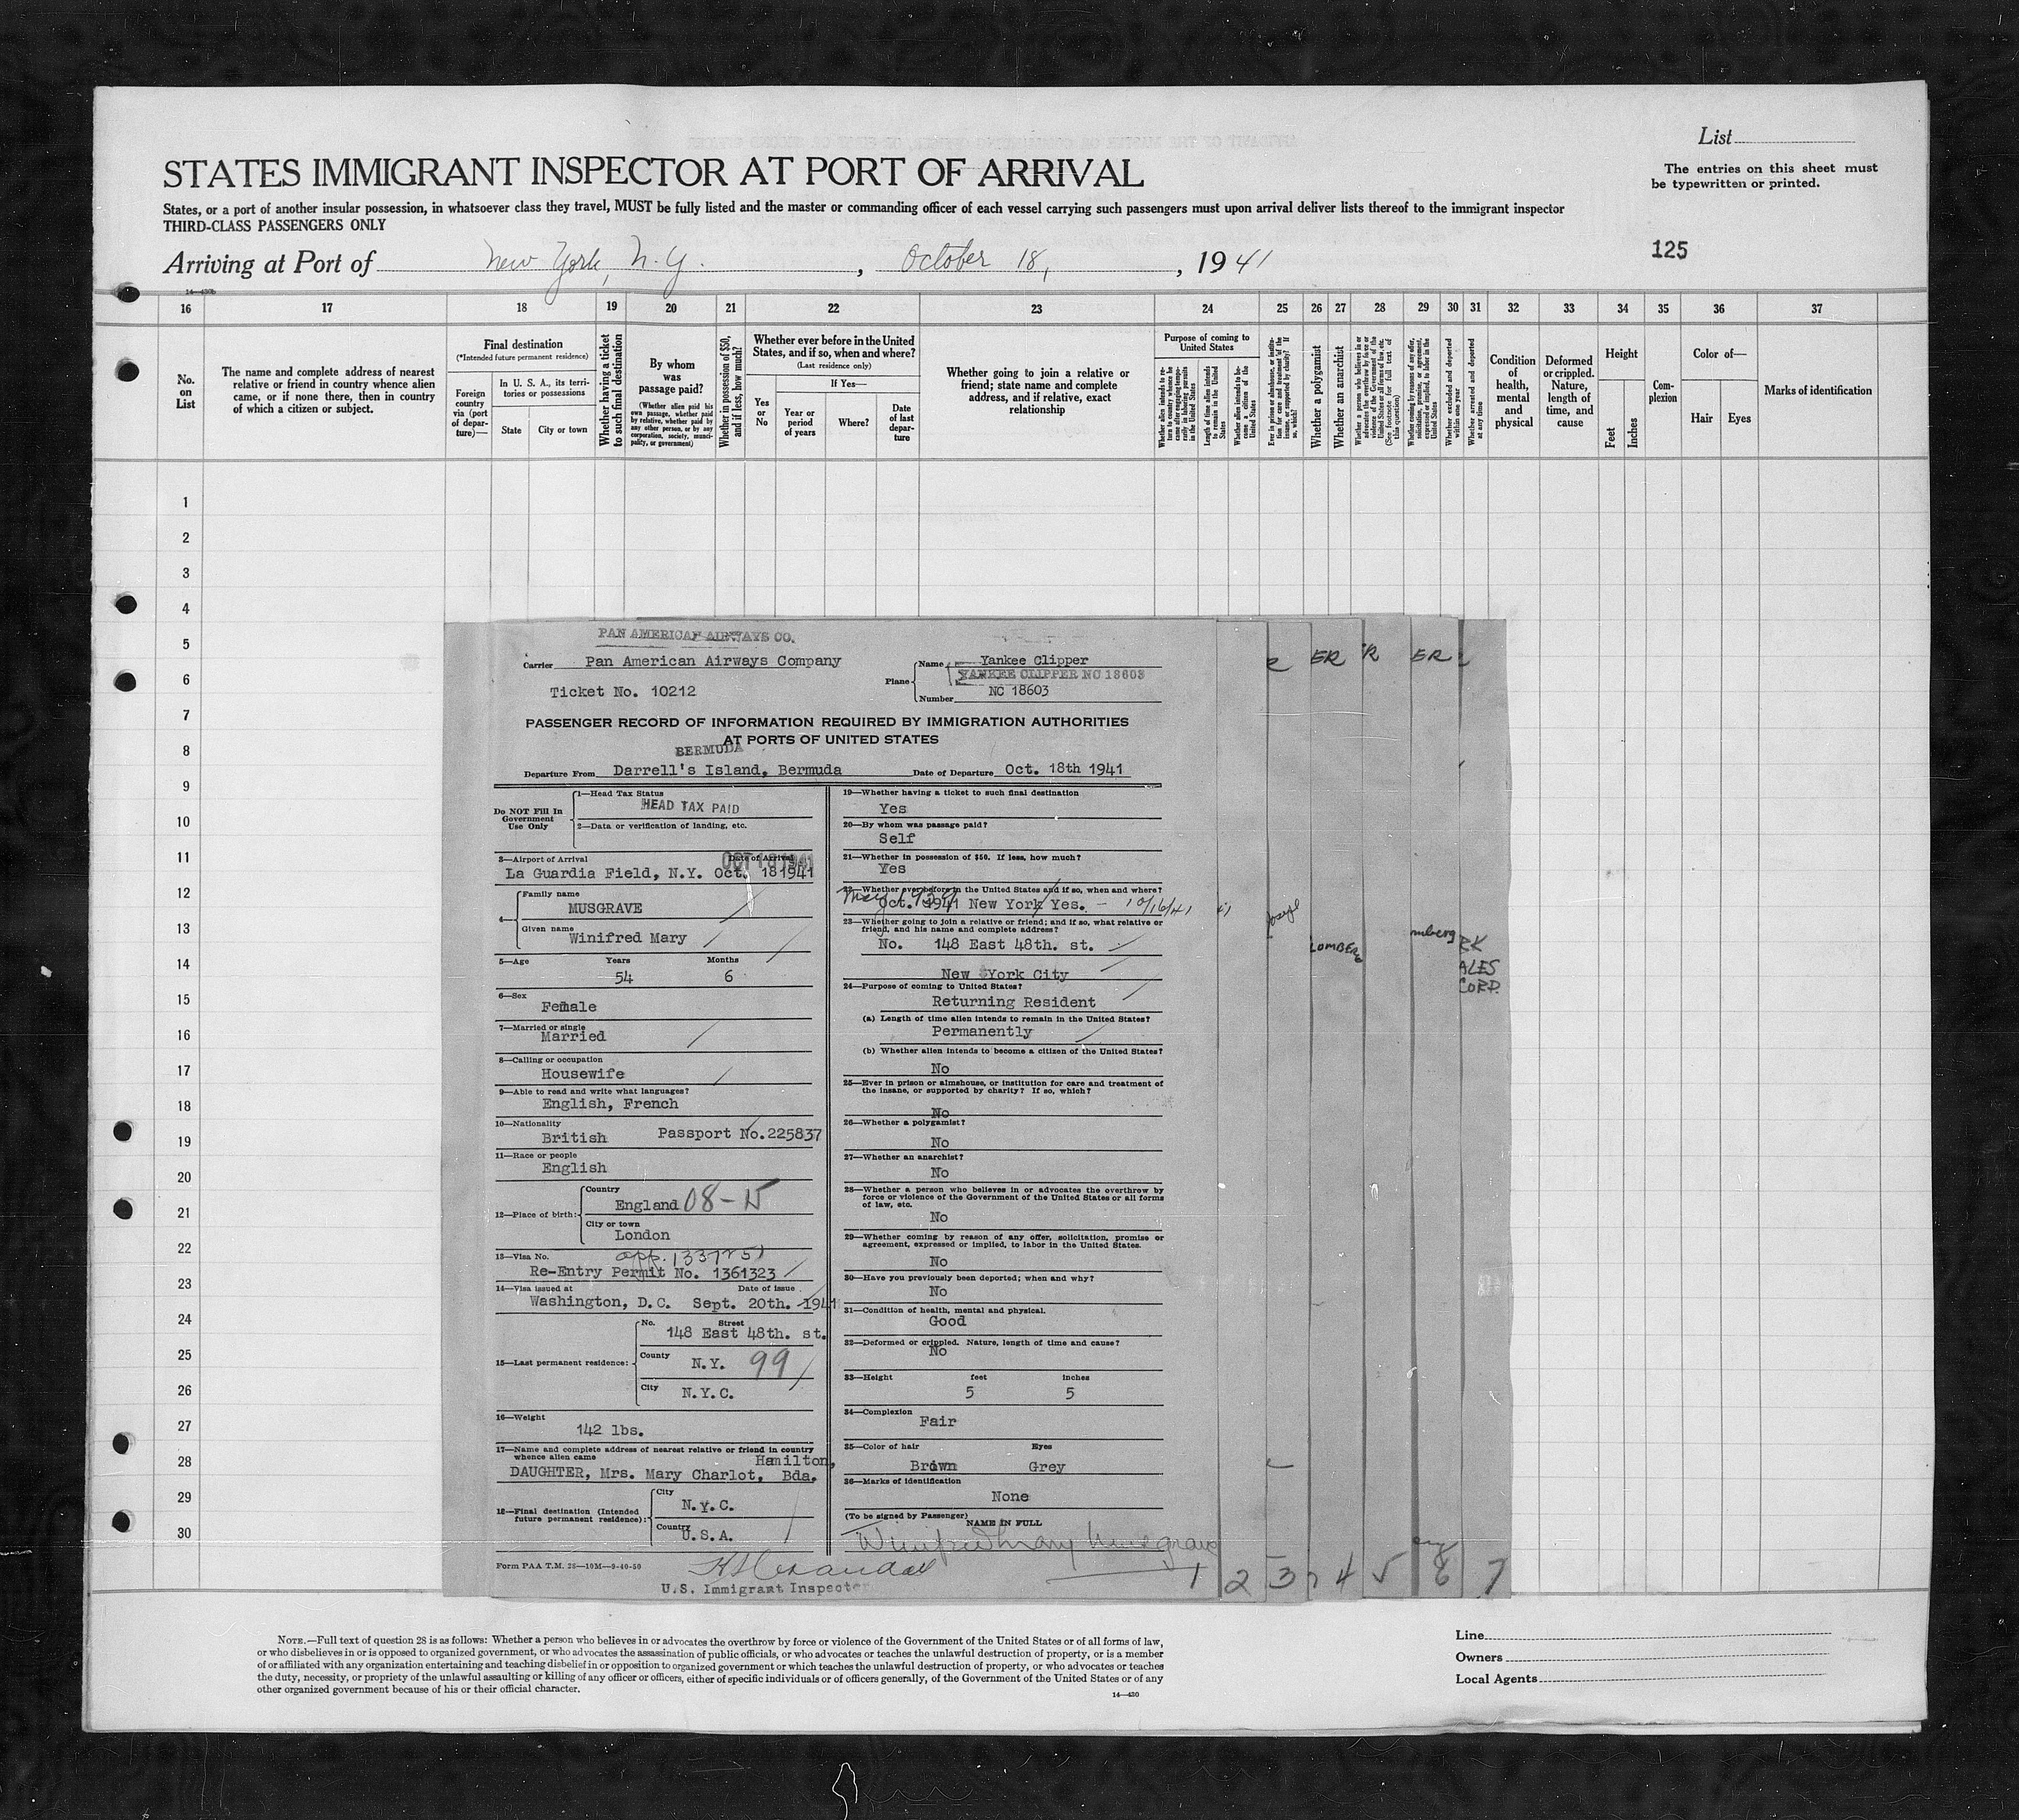 List
STATES IMMIGRANT INSPECTOR AT PORT OF ARRIVAL
The entries on this sheet must
be typewritten or printed.
States, or a port of another insular possession, in whatsoever class they travel, MUST be fully listed and the master or commanding officer of each vessel carrying such passengers must upon arrival deliver lists thereof to the immigrant inspector
THIRD-CLASS PASSENGERS ONLY
125
Arriving at Port of New York, N.Y. , October 18, , 1941
16 17 18 19 20 21 22 23 24 25 26 27 28 29 30 31 32 33 34 35 36 37
No. on List
The name and complete address of nearest relative or friend in country whence alien came, or if none there, then in country of which a citizen or subject.
Final destination
(*Intended future permanent residence)
Foreign country via (port of departure)—
In U. S. A., its territories or possessions
State
City or town
Whether having a ticket to such final destination
By whom was passage paid?
(Whether alien paid his own passage, whether paid by relative, whether paid by any other person, or by any corporation, society, municipality, or government)
Whether in possession of $50, and if less, how much?
Whether ever before in the United States, and if so, when and where?
(Last residence only)
Yes or No
If Yes—
Year or period of years
Where?
Date of last departure
Whether going to join a relative or friend; state name and complete address, and if relative, exact relationship
Purpose of coming to United States
Length of time alien intends to remain in the United States
Whether alien intends to become a citizen of the United States
Whether a polygamist
Whether an anarchist
Whether excluded and deported within one year
Whether arrested and deported at any time
Condition of health, mental and physical
Deformed or crippled. Nature, length of time, and cause
Height
Feet
Inches
Complexion
Color of—
Hair
Eyes
Marks of identification
1
2
3
4
5
6
7
8
9
10
11
12
13
14
15
16
17
18
19
20
21
22
23
24
25
26
27
28
29
30
PAN AMERICAN AIRWAYS CO.
Carrier Pan American Airways Company
Ticket No. 10212
Plane Name Yankee Clipper
YANKEE CLIPPER NC 18603
Number NC 18603
PASSENGER RECORD OF INFORMATION REQUIRED BY IMMIGRATION AUTHORITIES
AT PORTS OF UNITED STATES
BERMUDA
Departure From Darrell's Island, Bermuda Date of Departure Oct. 18th 1941
Do NOT Fill In Government Use Only
1—Head Tax Status
HEAD TAX PAID
2—Data or verification of landing, etc.
3—Airport of Arrival Date of Arrival
OCT 18 1941
La Guardia Field, N.Y. Oct. 18 1941
4— Family name
MUSGRAVE
Given name
Winifred Mary
5—Age Years Months
54 6
6—Sex
Female
7—Married or single
Married
8—Calling or occupation
Housewife
9—Able to read and write what languages?
English, French
10—Nationality
British Passport No. 225837
11—Race or people
English
12—Place of birth: Country
England
City or town
London
13—Visa No.
Re-Entry Permit No. 1361323
14—Visa issued at Date of issue
Washington, D.C. Sept. 20th. 1941
15—Last permanent residence: No. Street
148 East 48th. st.
County N.Y. 99
City N.Y.C.
16—Weight
142 lbs.
17—Name and complete address of nearest relative or friend in country
whence alien came
Hamilton,
DAUGHTER, Mrs. Mary Charlot, Bda.
18—Final destination (Intended future permanent residence): City
N.Y.C.
Country
U.S.A.
Form PAA T.M. 26—10M—9-40-50
U.S. Immigrant Inspector
19—Whether having a ticket to such final destination
Yes
20—By whom was passage paid?
Self
21—Whether in possession of $50. If less, how much?
Yes
22—Whether ever before in the United States and if so, when and where?
Oct. 1941 New York Yes. - 10/16/41
23—Whether going to join a relative or friend; and if so, what relative or
friend, and his name and complete address?
No. 148 East 48th. st.
New York City
24—Purpose of coming to United States?
Returning Resident
(a) Length of time alien intends to remain in the United States?
Permanently
(b) Whether alien intends to become a citizen of the United States?
No
25—Ever in prison or almshouse, or institution for care and treatment of
the insane, or supported by charity? If so, which?
No
26—Whether a polygamist?
No
27—Whether an anarchist?
No
28—Whether a person who believes in or advocates the overthrow by
force or violence of the Government of the United States or all forms
of law, etc.
No
29—Whether coming by reason of any offer, solicitation, promise or
agreement, expressed or implied, to labor in the United States.
No
30—Have you previously been deported; when and why?
No
31—Condition of health, mental and physical.
Good
32—Deformed or crippled. Nature, length of time and cause?
No
33—Height feet inches
5 5
34—Complexion
Fair
35—Color of hair Eyes
Brown Grey
36—Marks of identification
None
(To be signed by Passenger) NAME IN FULL
Winifred Mary Musgrave
1 2 3 4 5 6 7
ER
ER
LOMBERG
mberg
RK
ALES
CORP.
NOTE.—Full text of question 28 is as follows: Whether a person who believes in or advocates the overthrow by force or violence of the Government of the United States or of all forms of law,
or who disbelieves in or is opposed to organized government, or who advocates the assassination of public officials, or who advocates or teaches the unlawful destruction of property, or is a member
of or affiliated with any organization entertaining and teaching disbelief in or opposition to organized government or which teaches the unlawful destruction of property, or who advocates or teaches
the duty, necessity, or propriety of the unlawful assaulting or killing of any officer or officers, either of specific individuals or of officers generally, of the Government of the United States or of any
other organized government because of his or their official character.
14—430
Line
Owners
Local Agents